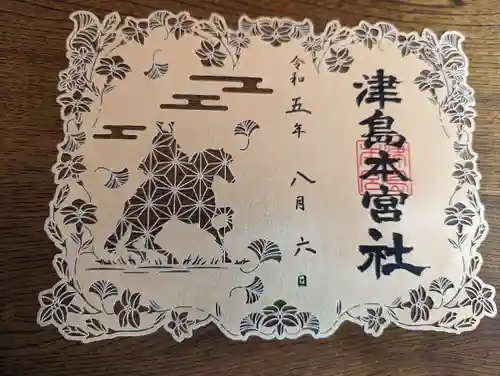 津島本宮社
令和五年 八月 六日